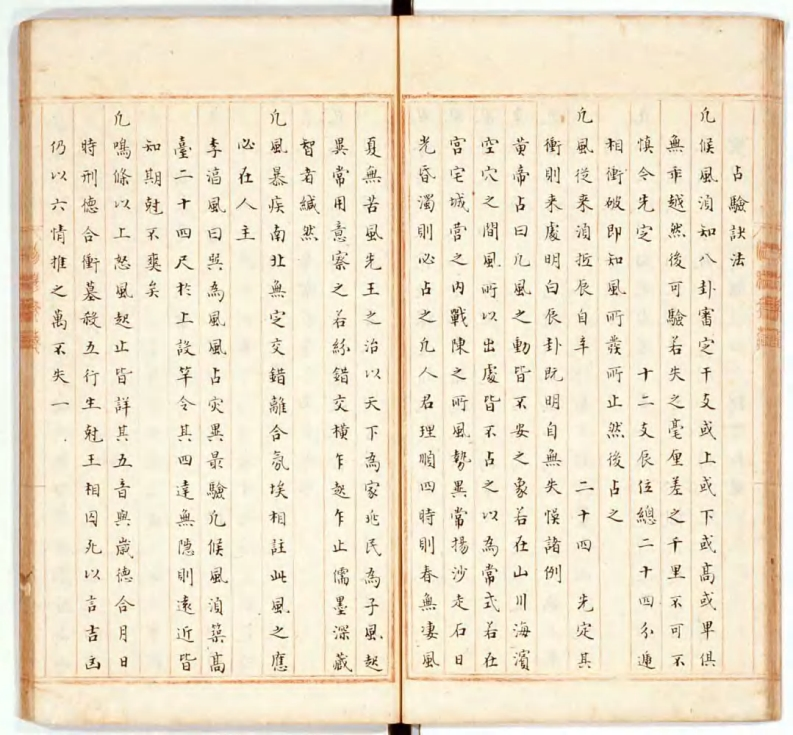 占驗訣法
凡候風湏知八卦審定干支或上或下或髙或卑俱
無乖越然後可驗若失之毫厘差之千里不可不
慎令先定 十二支辰位總二十四分遁
相衝破即知風所發所止然後占之
凡風從來湏抵辰自辛 二十四 先定其
衝則来處明白辰卦既明自無失悞諸例
黄帝占曰凡風之動皆不安之象若在山川海濱
空穴之間風所以出處皆不占之以為常式若在
宫宅城營之内戰陳之所風勢異常揚沙走石日
光昏濁則必占之凡人君理順四時則春無凄風
夏無苦風先王之治以天下為家兆民為子風起
異常用意察之若絲錯交横乍起乍止儒墨深藏
智者緘然
凡風暴疾南北無定交錯離合氛埃相註此風之應
必在人主
李淳風曰巽為風風占灾異最驗凡候風湏築髙
臺二十四尺於上設竿令其四達無隱則遠近皆
知期尅不爽矣
凡鳴條以上怒風起止皆詳其五音與歲德合月日
時刑德合衝墓殺五行生尅王相囚死以言吉凶
仍以六情推之萬不失一